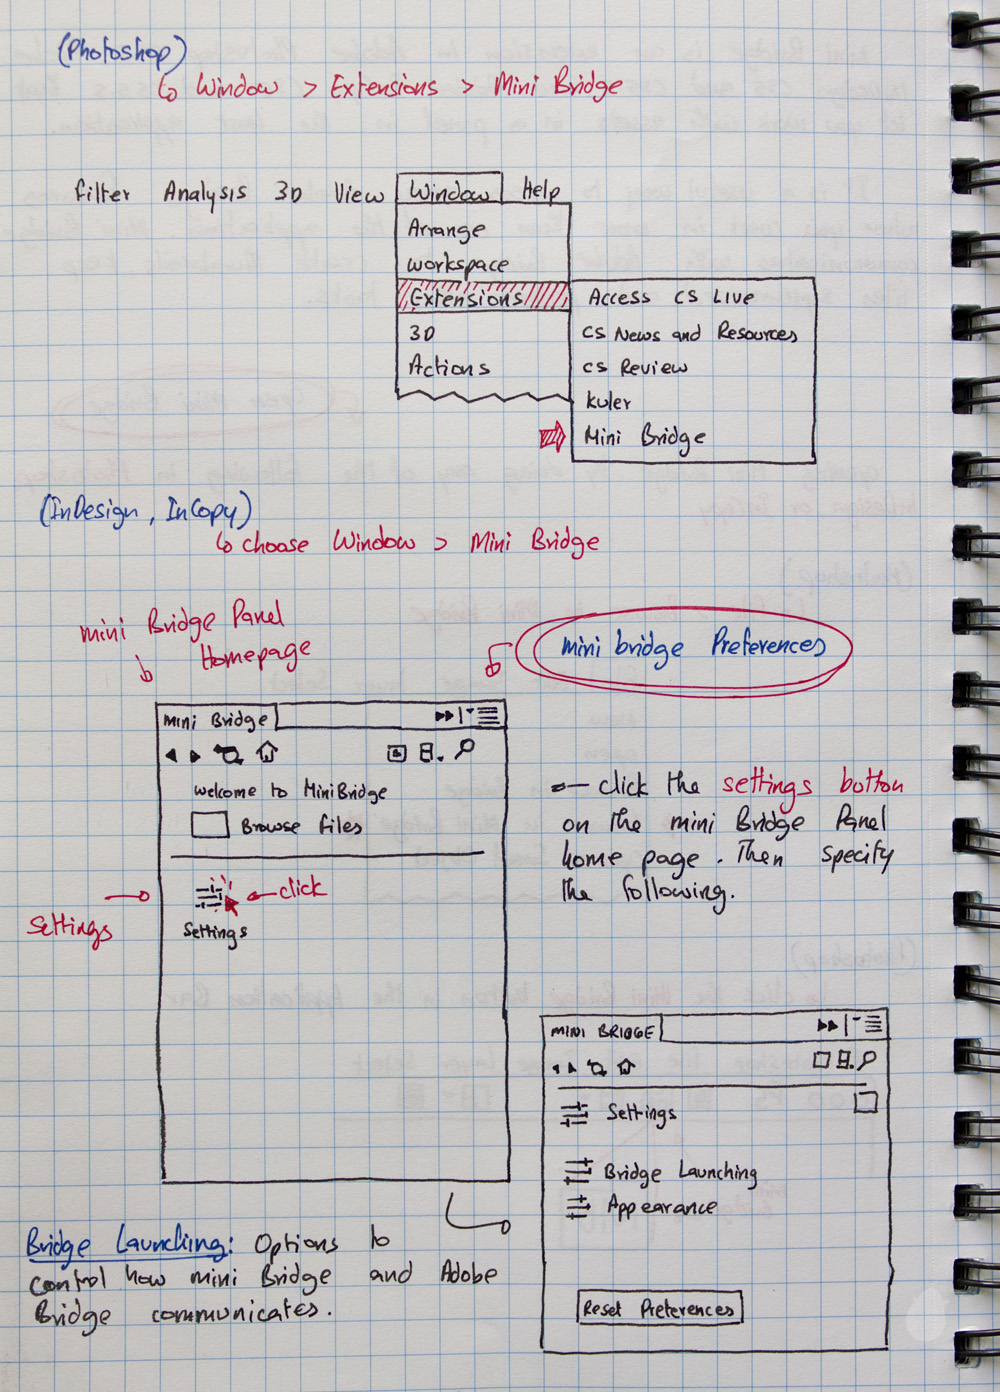 (Photoshop)
↳ Window > Extensions > Mini Bridge
filter Analysis 3D View Window Help
Arrange
workspace
Extensions
3D
Actions
Access CS Live
CS News and Resources
CS Review
kuler
Mini Bridge
(InDesign, InCopy)
↳ choose Window > Mini Bridge
mini Bridge Panel
Homepage
mini bridge Preferences
Mini Bridge
welcome to MiniBridge
Browse files
Settings
click
Settings
click the settings button
on the mini Bridge Panel
home page. Then specify
the following.
MINI BRIDGE
Settings
Bridge Launching
Appearance
Reset Preferences
Bridge Launching: Options to
control how mini Bridge and Adobe
Bridge communicates.